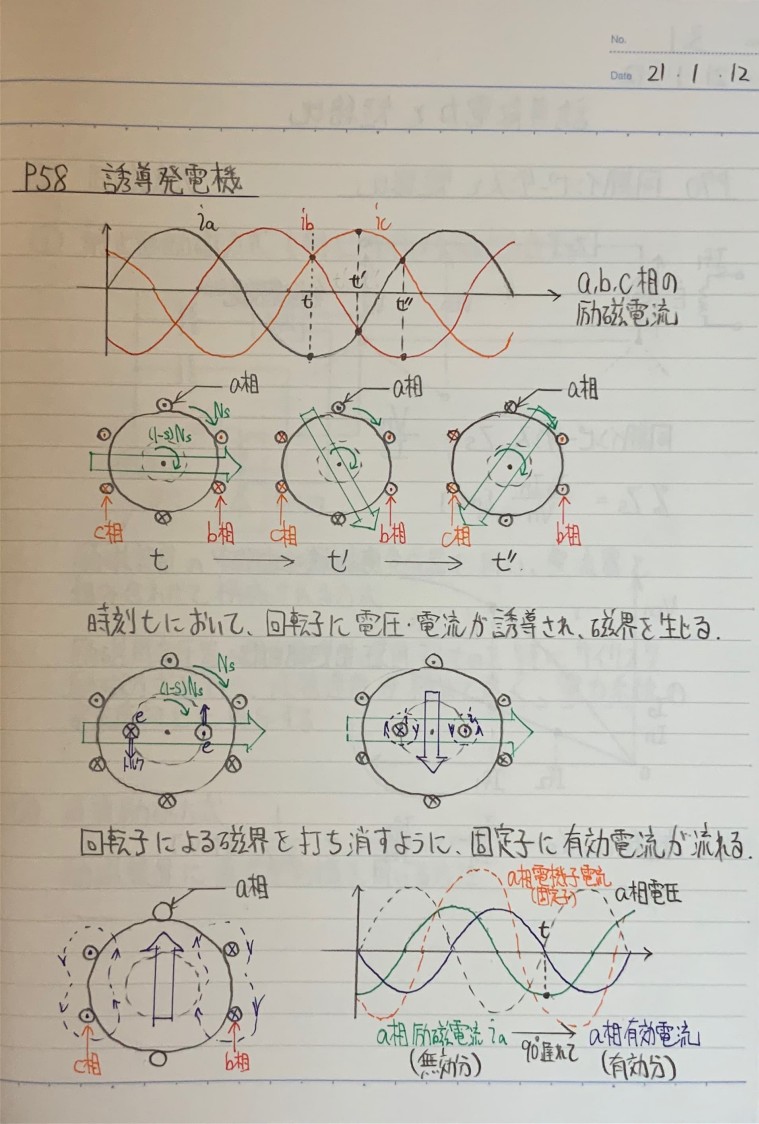 No.
Date 21・1・12
P58 誘導発電機
ia ib ic
t t' t''
a,b,c 相の
励磁電流
a相 a相 a相
Ns
(1-s)Ns
c相 b相 c相 b相 c相 b相
t → t' → t''
時刻tにおいて、回転子に電圧・電流が誘導され、磁界を生じる.
Ns
(1-s)Ns
e e i i
トルク
回転子による磁界を打ち消すように、固定子に有効電流が流れる.
a相
a相電機子電流
(固定子)
a相電圧
t
c相 b相
a相励磁電流 ia → a相有効電流
(無効分) 90°遅れて (有効分)